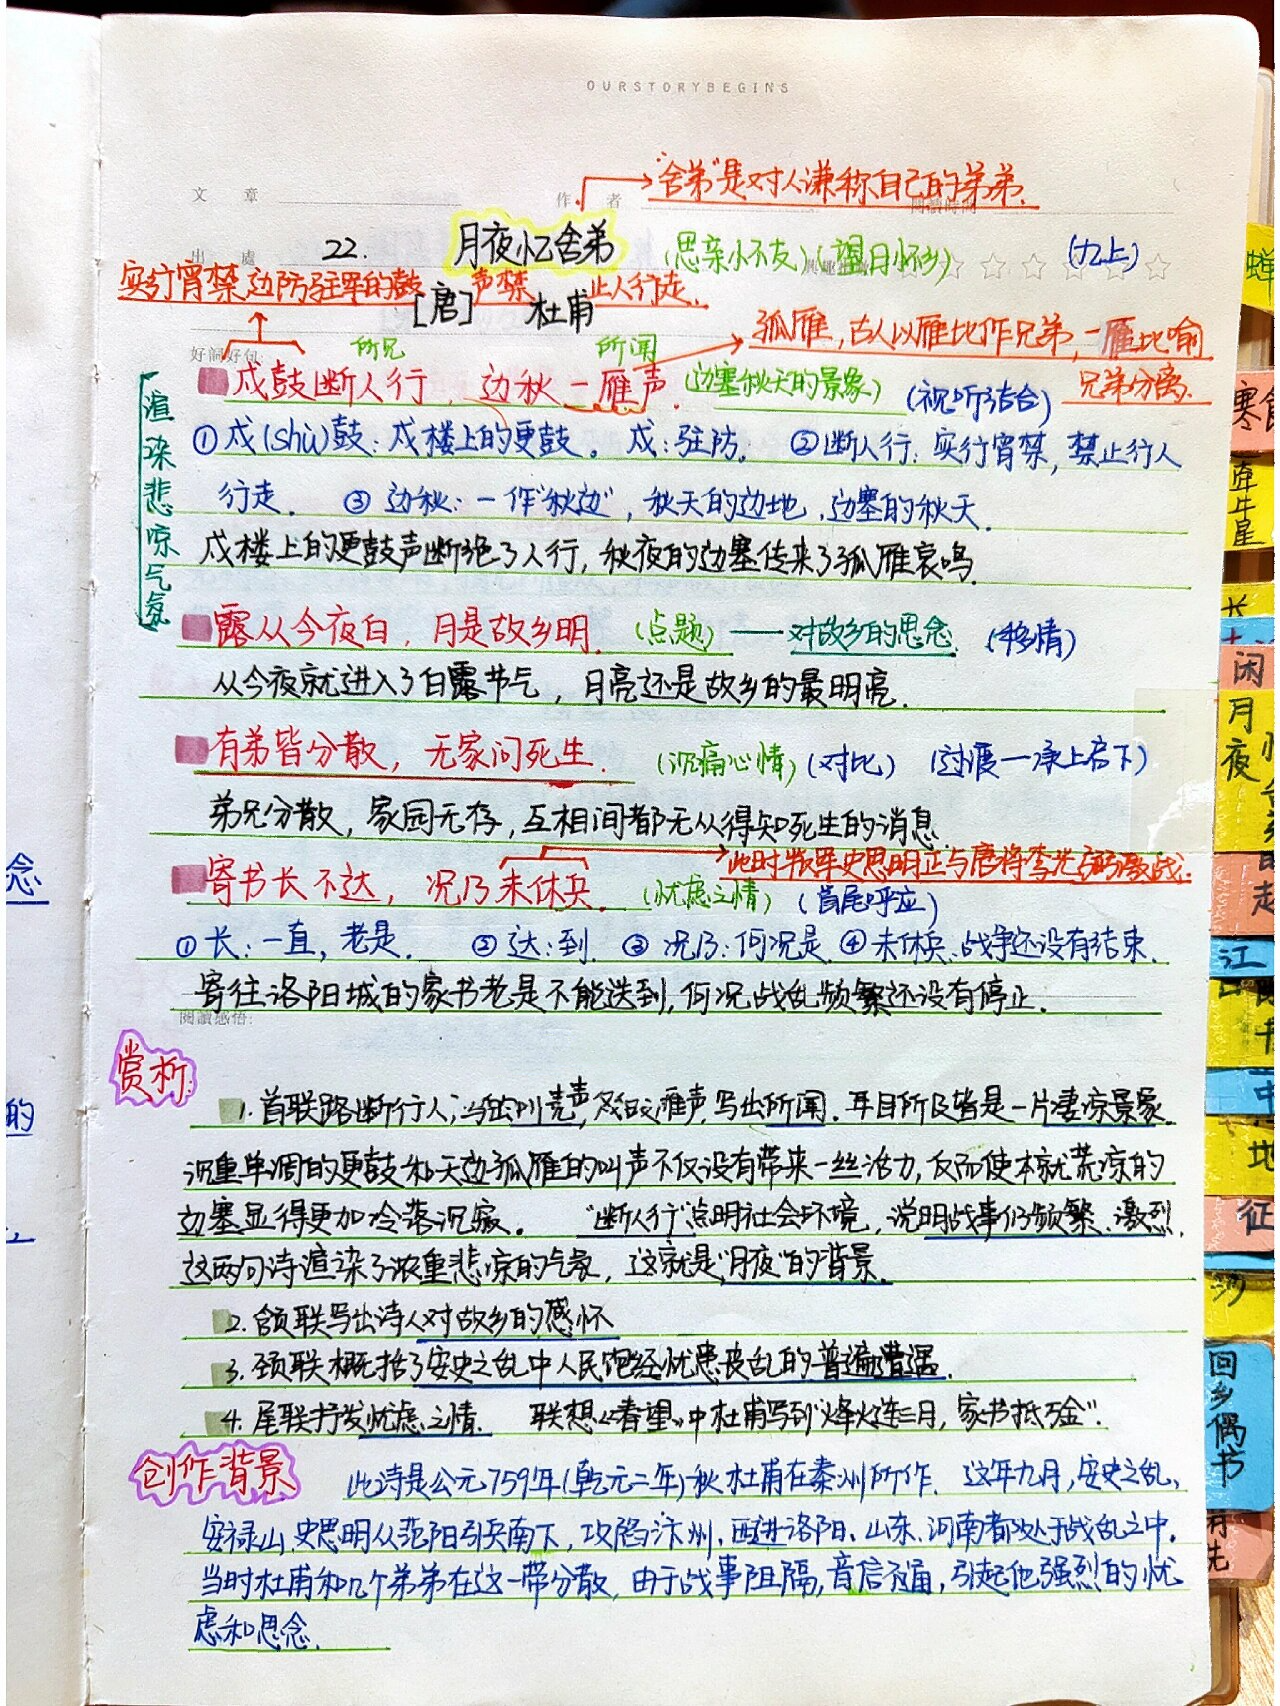 OURSTORYBEGINS
"舍弟"是对人谦称自己的弟弟.
文 章
作 者
閱讀時間
出 處 22. 月夜忆舍弟 (思亲小不友) (望月怀乡) (九上)
实行宵禁,边防驻军的鼓声禁止人行走.
[唐] 杜甫
孤雁,古人以雁比作兄弟,一雁比喻
兄弟分离.
好詞好句:
所见 所闻
戍鼓断人行, 边秋一雁声. (边塞秋天的景象) (视听结合)
渲染悲凉气氛
①戍(shù)鼓:戍楼上的更鼓。戍:驻防. ②断人行:实行宵禁,禁止行人
行走. ③边秋:一作"秋边",秋天的边地,边塞的秋天.
戍楼上的更鼓声断绝了人行,秋夜的边塞传来了孤雁哀鸣.
露从今夜白,月是故乡明. (点题)——对故乡的思念 (移情)
从今夜就进入了白露节气,月亮还是故乡的最明亮.
有弟皆分散, 无家问死生. (沉痛心情) (对比) (过渡—承上启下)
弟兄分散,家园无存,互相间都无从得知死生的消息.
此时叛军史思明正与唐将李光弼激战.
寄书长不达, 况乃未休兵. (忧虑之情) (首尾呼应)
①长:一直,老是. ②达:到. ③况乃:何况是. ④未休兵:战争还没有结束.
寄往洛阳城的家书老是不能送到,何况战乱频繁还没有停止.
閱讀感悟:
赏析:
1.首联路断行人,写出所见,戍鼓雁声,写出所闻.耳目所及皆是一片凄凉景象.
沉重单调的更鼓和天边孤雁的叫声不仅没有带来一丝活力,反而使本就荒凉的
边塞显得更加冷落沉寂。 "断人行"点明社会环境,说明战事仍频繁、激烈.
这两句诗渲染了浓重悲凉的气象,这就是"月夜"的背景.
2.颔联写出诗人对故乡的感怀
3.颈联概括了安史之乱中人民饱经忧患丧乱的普遍遭遇.
4.尾联抒发忧虑之情. 联想《春望》中杜甫写到"烽火连三月,家书抵万金".
创作背景
此诗是公元759年(乾元二年)秋杜甫在秦州所作. 这年九月,安史之乱,
安禄山,史思明从范阳引兵南下,攻陷汴州,西进洛阳、山东、河南都处于战乱之中.
当时杜甫和几个弟弟在这一带分散,由于战事阻隔,音信不通,引起他强烈的忧
虑和思念.
念
的
蝉
寒食
牵牛星
长
闲
月夜
江
中
地
征
沙
回乡偶书